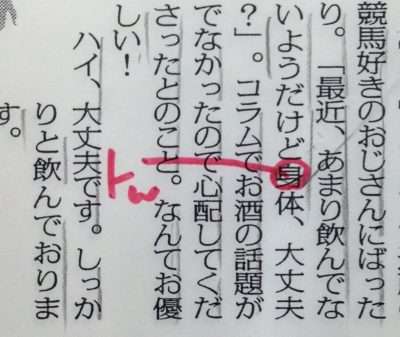 競馬好きのおじさんにばった
り。「最近、あまり飲んでな
いようだけど身体、大丈夫
？」。コラムでお酒の話題が
でなかったので心配してくだ
さったとのこと。なんてお優
しい！
ハイ、大丈夫です。しっか
りと飲んでおりま
す。